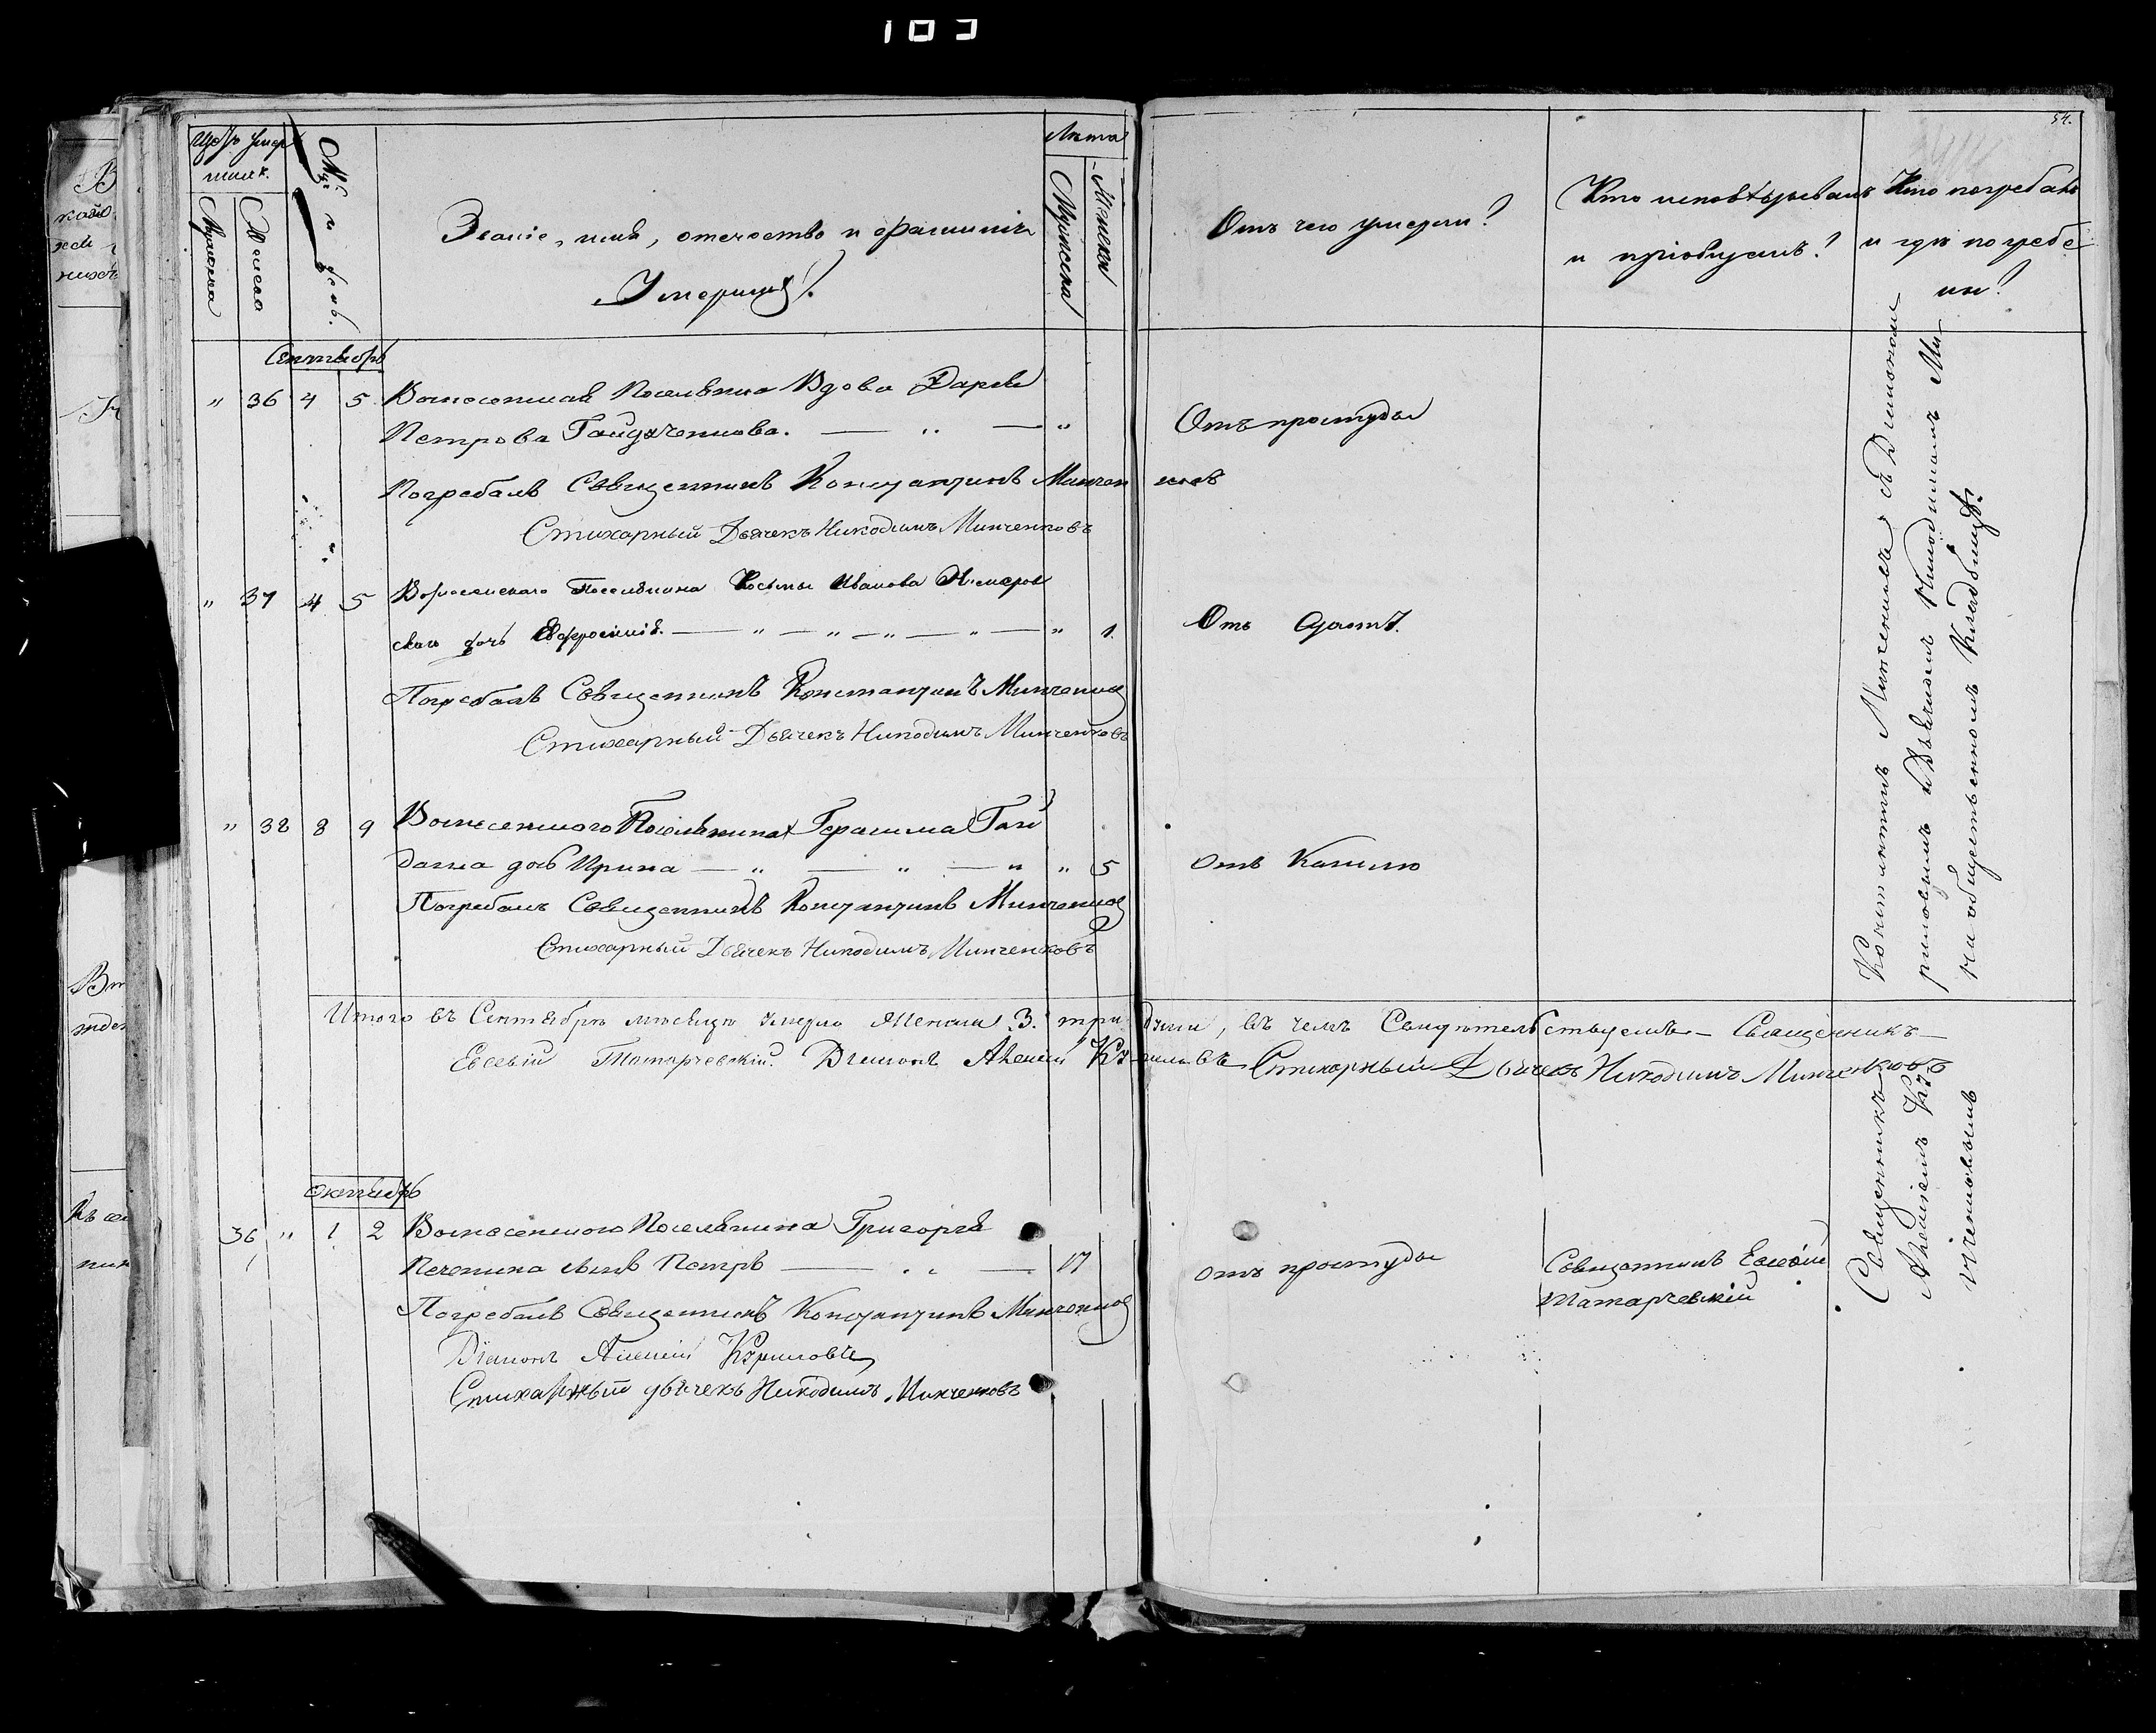 103
54.
Щетъ умер
шихъ.
Мужеска
Женска
Мц и день.
Званіе, имя, отечество и фамилія
Умершихъ.
Лѣта
Мужеска
Женска
Отъ чего умерли?
Кто исповѣдывалъ
и пріобщалъ?
Кто погребалъ
и гдѣ погребе
ны?
Сентябрь
" 36 4 5 Вознесенская Поселянка Вдова Дарья
Петрова Гайдученкова. — " — "
Отъ простуды
Погребалъ Священникъ Константинъ Минченковъ
Стихарный Дьячекъ Никодимъ Минченковъ
" 37 4 5 Вознесенскаго Поселянина Косьмы Иванова
скаго дочь Евфросинія. — " — " — " — " — " 1.
Отъ
Погребалъ Священникъ Константинъ Минченковъ
Стихарный Дьячекъ Никодимъ Минченковъ
" 38 8 9 Вознесенскаго Поселянина Герасима Гай
дача дочь Ирина — " — " — " " 5
Отъ Кашлю
Погребалъ Священникъ Константинъ Минченковъ
Стихарный Дьячекъ Никодимъ Минченковъ
Итого въ Сентябрѣ мѣсяцѣ умерло Женска 3. три души, въ чемъ Свидѣтельствуемъ — Священникъ —
Евсевій Татарчевскій. Діаконъ Алексій Стихарный Дьячекъ Никодимъ Минченковъ
Октябрь
36 " 1 2 Вознесенскаго Поселянина Григорія
Печеника сынъ Петръ — " — 17
отъ простуды
Священникъ Евсевій
Татарчевскій
Погребалъ Священникъ Константинъ Минченковъ
Діаконъ Алексій
Стихарный дьячекъ Никодимъ Минченковъ
Священникъ Константинъ Минченковъ съ Діакономъ
Алексіемъ и Дьячкомъ Никодимомъ Ми
нченковымъ на общественномъ Кладбищѣ.